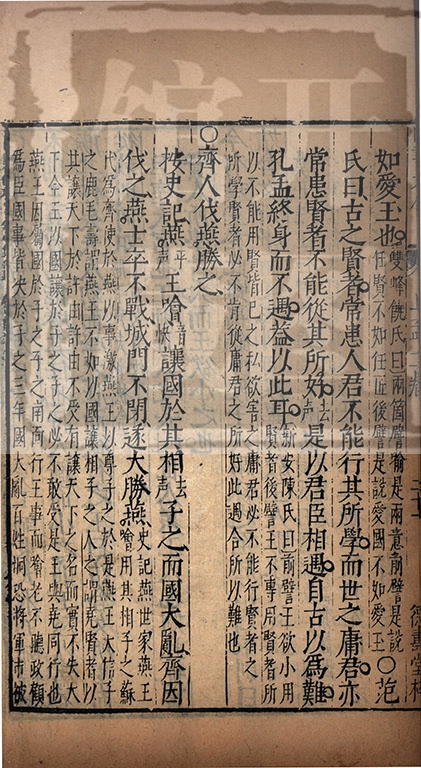 如愛玉也
雙峰饒氏曰兩箇譬喻是兩意前譬是說
任賢不如任匠後譬是說愛國不如愛玉
○范
氏曰古之賢者常患人君不能行其所學而世之庸君亦
常患賢者不能從其所好去聲是以君臣相遇自古以爲難
孔孟終身而不遇蓋以此耳
新安陳氏曰前譬王欲小用
賢者後譬王不專用賢者
以不能用賢皆巳之私欲害之庸君必不能行賢者之
所學賢者必不肯從庸君之所好此遇合所以難也
○齊人伐燕勝之
按史記燕平聲王噲音快讓國於其相去聲子之而國大亂齊因
伐之燕士卒不戰城門不閉遂大勝燕
史記燕世家燕王
噲用其相子之蘇
代爲齊使於燕以事激燕王以尊子之於是燕王大信子
之鹿毛壽謂燕王不如以國讓相子之人之謂堯賢者以
其讓天下於許由許由不受有讓天下之名而實不失天
下今王以國讓於子之子之必不敢受是王與堯同行也
燕王因屬國於子之子之南面行王事而噲老不聽政顧
爲臣國事皆決於子之三年國大亂百姓恫恐將軍市被
德壽堂梓